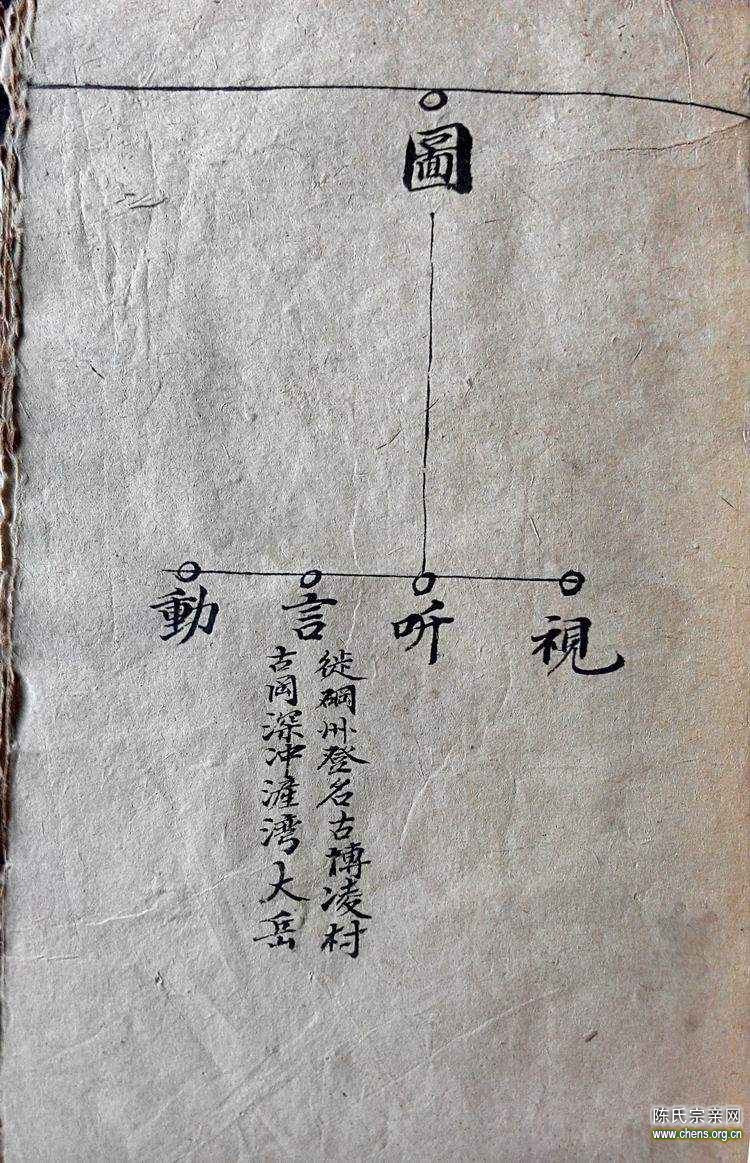 圖
視
听
言
動
徙硐州登名古博凌村
古岡深冲漄湾大岳
陈氏宗亲网
www.chens.org.cn